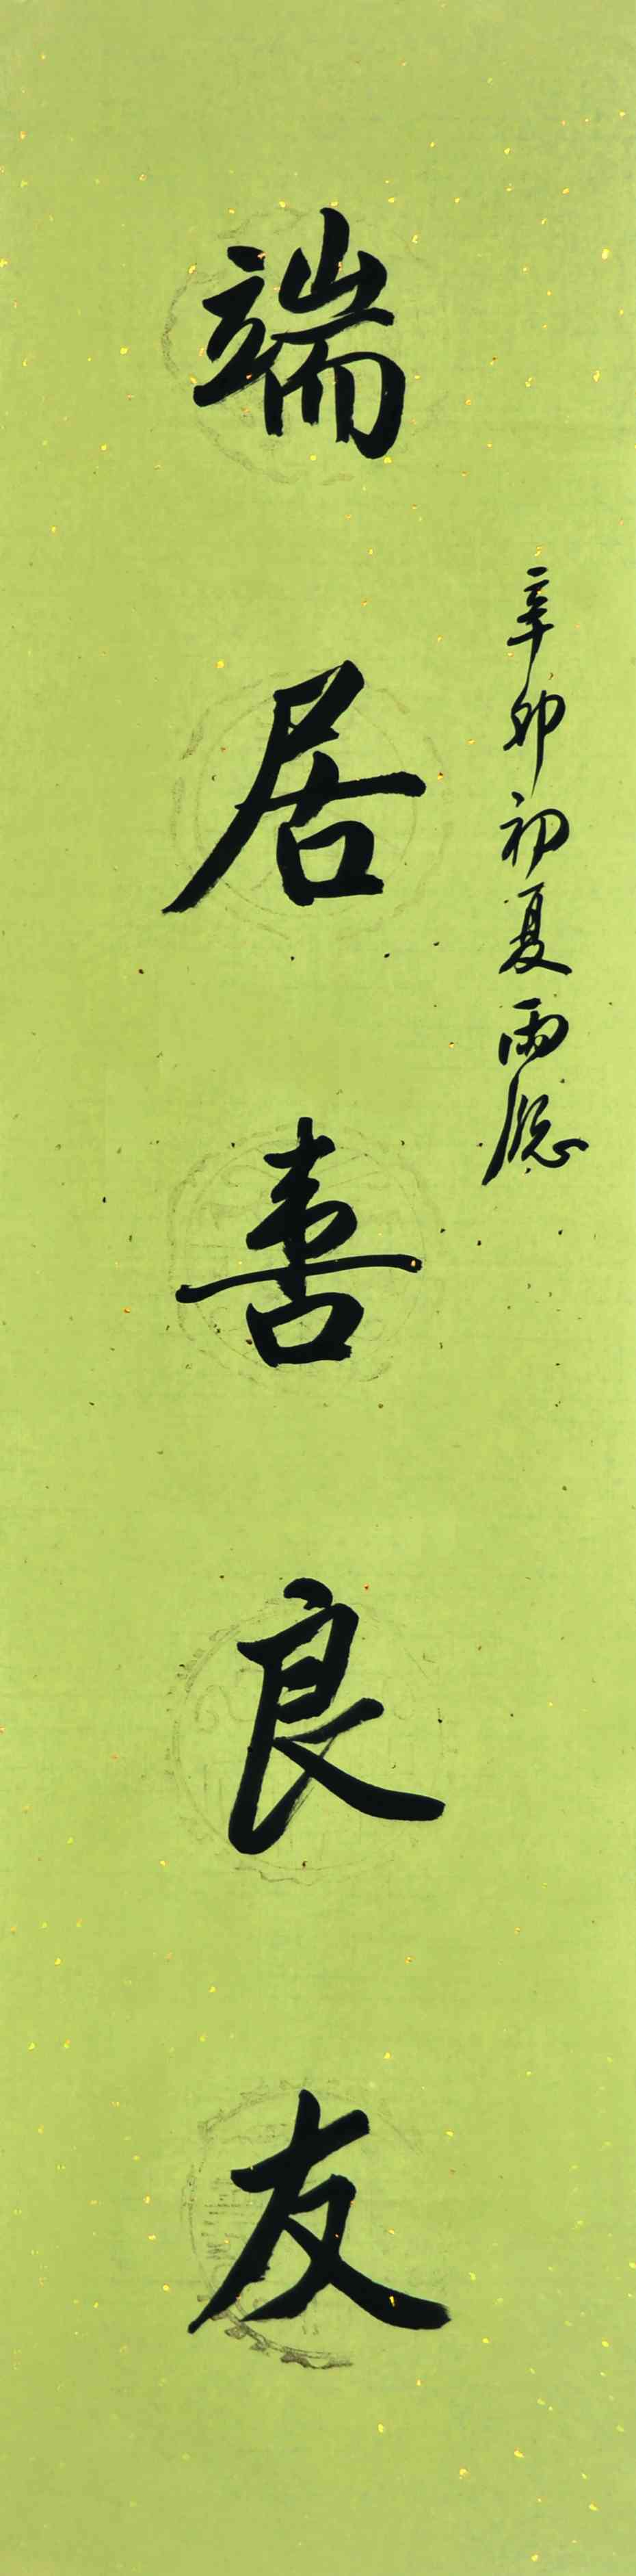 辛卯初夏雨
端居喜良友